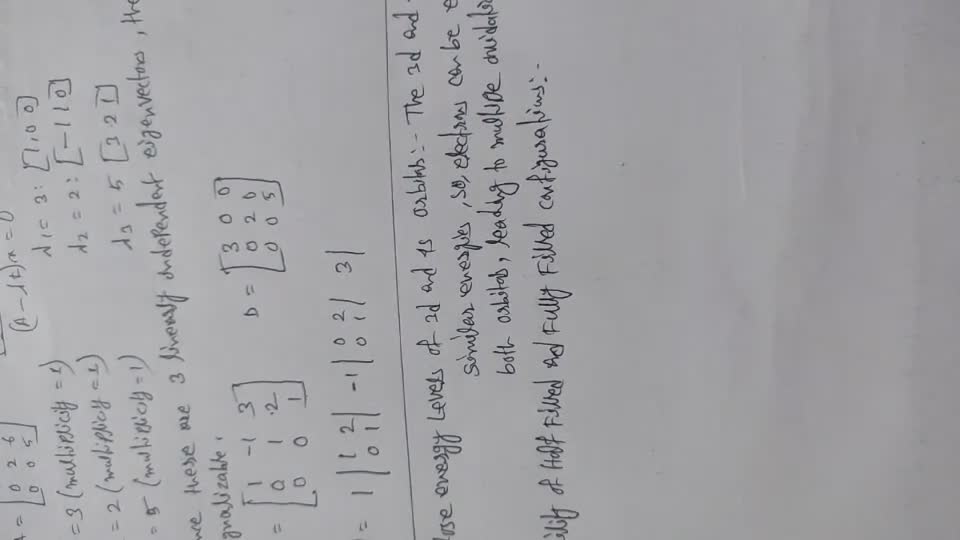 (A - λI)x = 0
= [0 2 6
0 0 5]
= 3 (multiplicity = 1) λ1 = 3 : [1, 0 0]
= 2 (multiplicity = 1) λ2 = 2 : [-1 1 0]
= 5 (multiplicity = 1) λ3 = 5 [3 2 1]
these are 3 linearly independent eigenvectors, the
= [1 -1 3
0 1 2
0 0 1] D = [3 0 0
0 2 0
0 0 5]
= 1 |1 2
0 1| -1 |0 2
0 1| 3|
energy levels of 3d and 4s orbitals :- The 3d and
similar energies, so, electrons can be
both orbitals, leading to multiple
of Half Filled and Fully Filled configurations:-